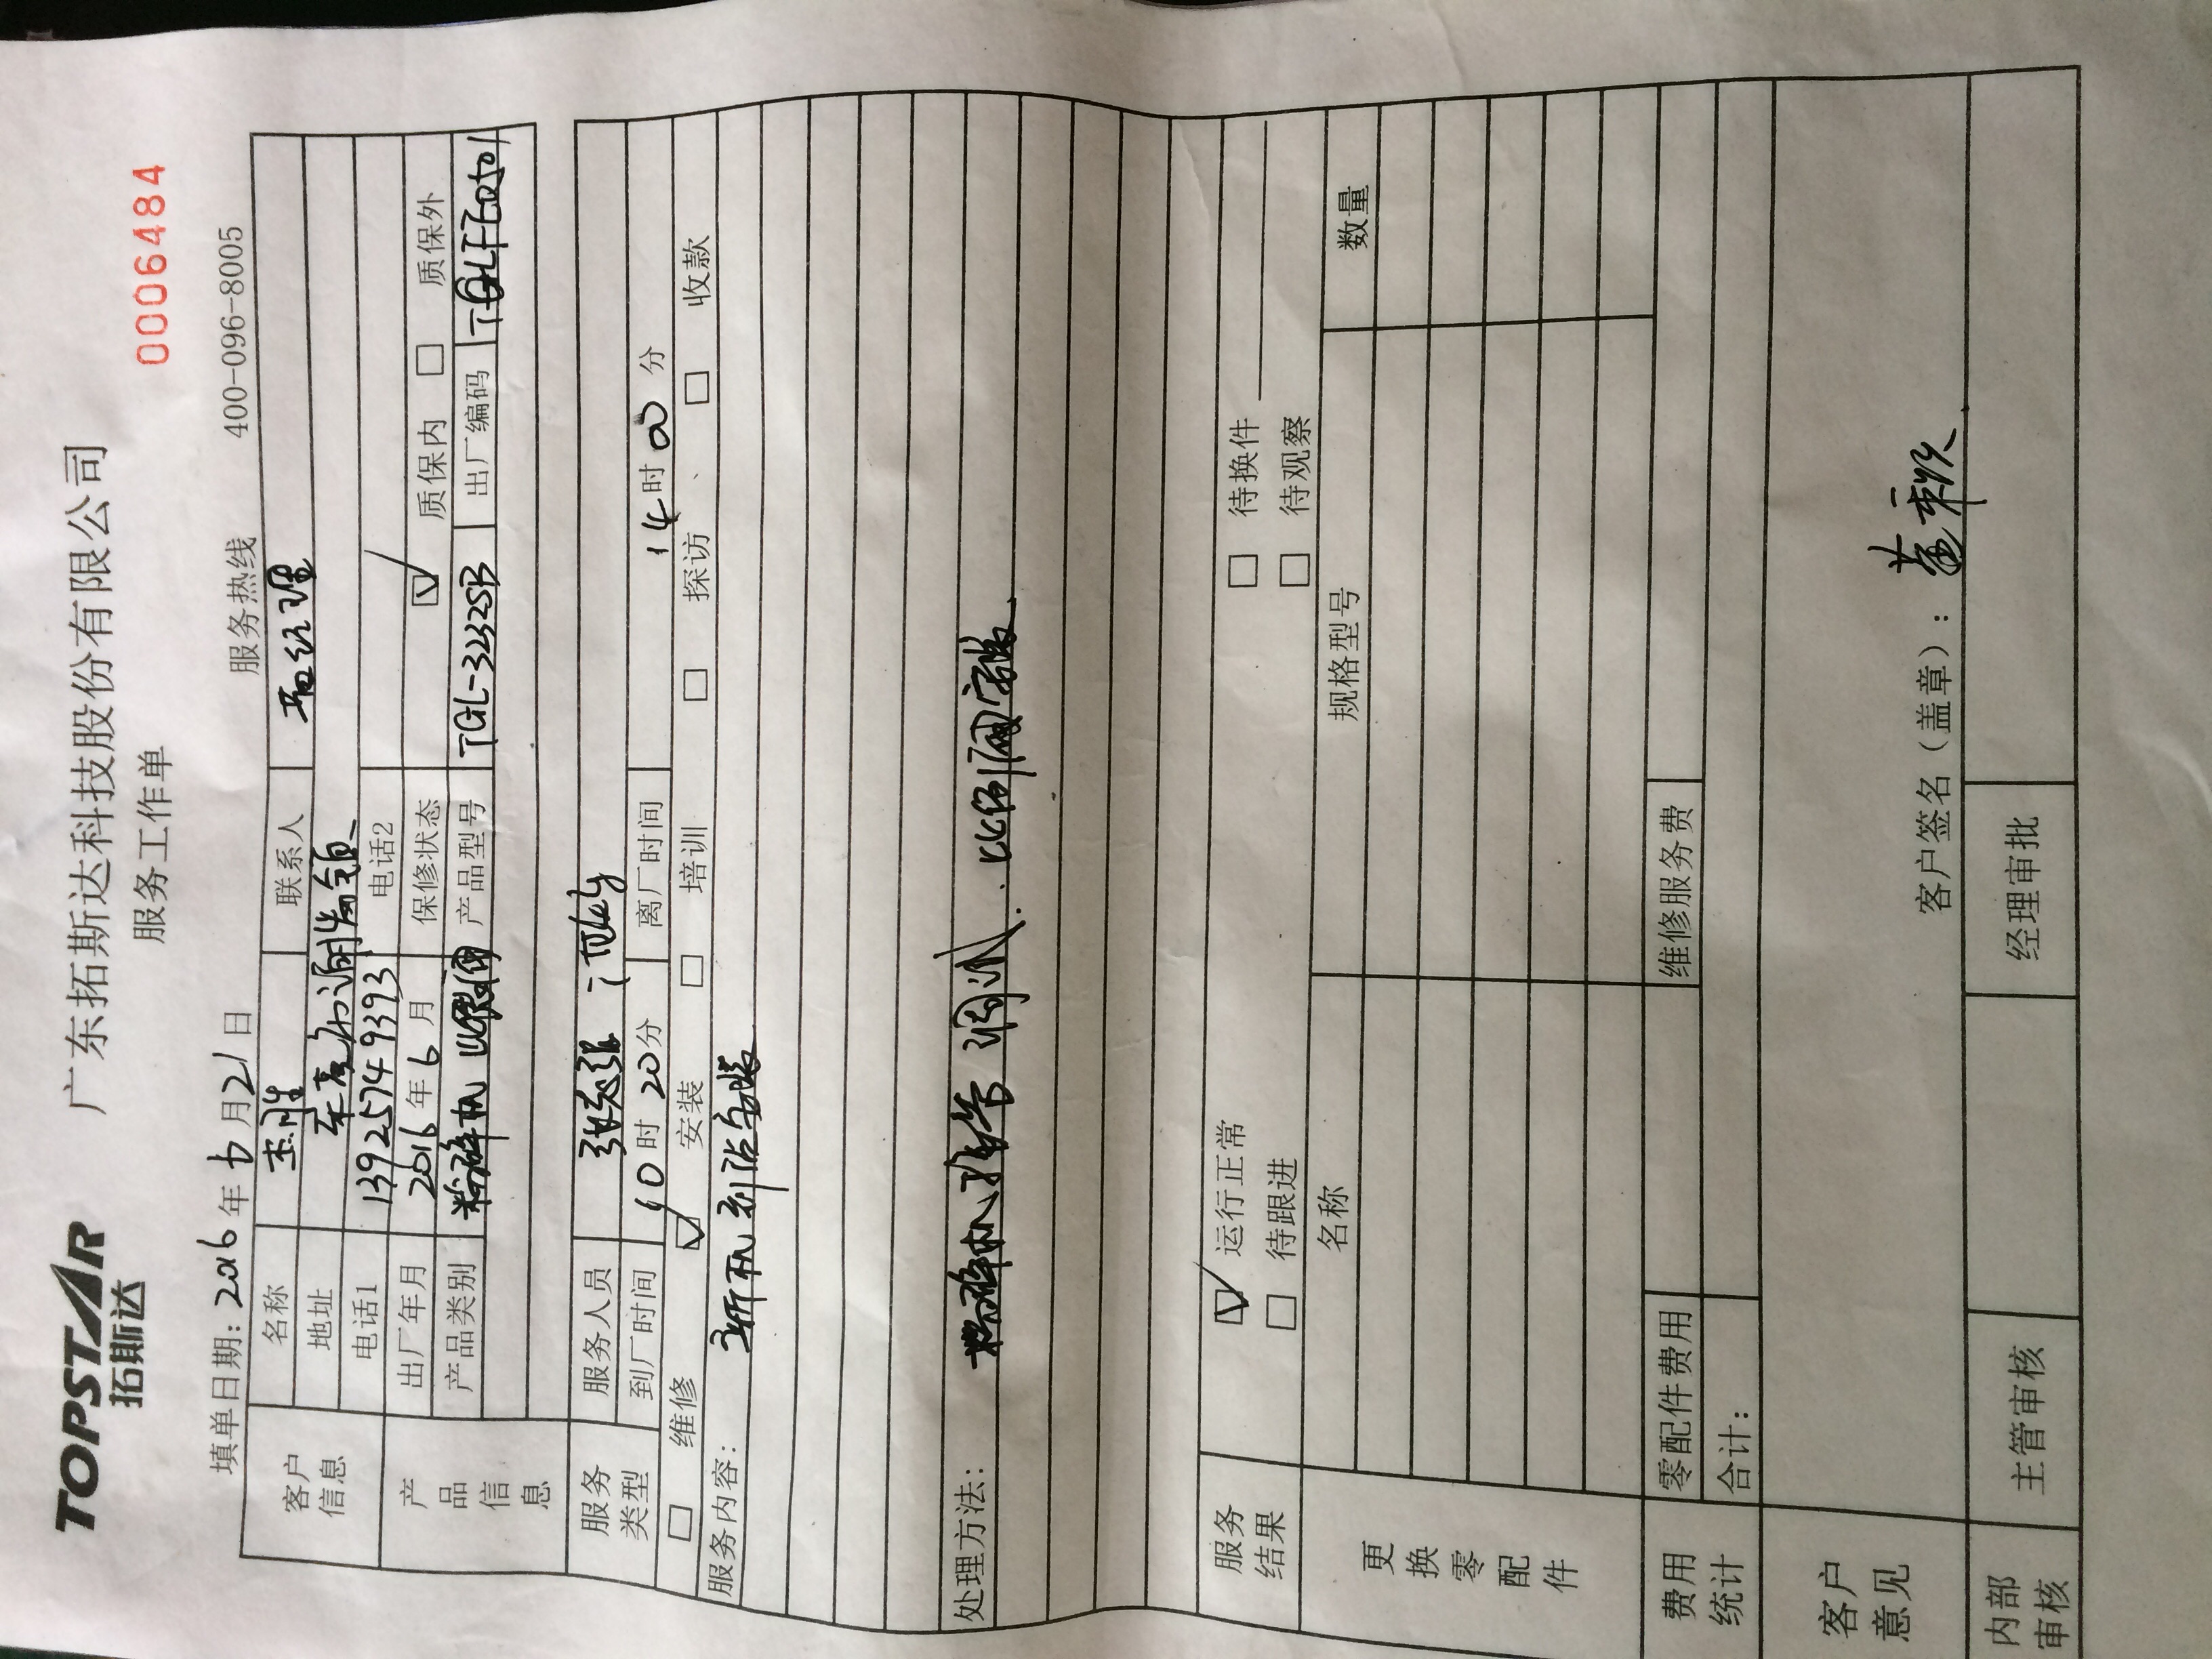 TOPSTAR
拓斯达
广东拓斯达科技股份有限公司
0006484
服务工作单
填单日期: 2016 年 6 月 21 日 服务热线 400-096-8005
客户信息 名称 联系人 经理
地址
电话1 13925749393 电话2
产品信息 出厂年月 2016 年 6 月 保修状态 ☑ 质保内 □ 质保外
产品类别 粉碎机 产品型号 TGL-3232SB 出厂编码
服务类型 服务人员
到厂时间 10 时 20 分 离厂时间 14 时 00 分
□ 维修 ☑ 安装 □ 培训 □ 探访 □ 收款
服务内容: 新机到陷安装
处理方法: 粉碎机 调试
服务结果 ☑ 运行正常 □ 待换件
□ 待跟进 □ 待观察
更换零配件 名称 规格型号 数量
费用统计 零配件费用 维修服务费
合计:
客户意见
客户签名(盖章):
内部审核 主管审核 经理审批